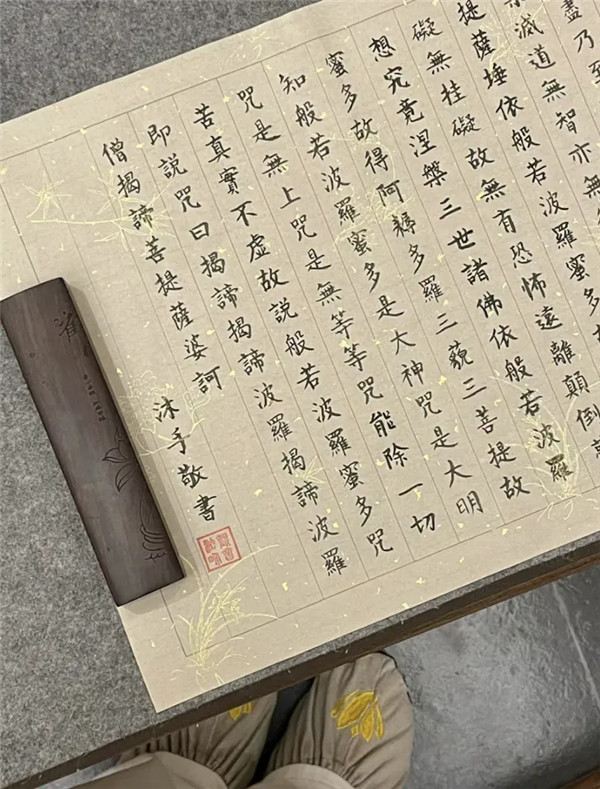 盡乃至
滅道無智亦無
提薩埵依般若波羅蜜多
礙無挂礙故無有恐怖遠離顛倒
想究竟涅槃三世諸佛依般若波羅
蜜多故得阿耨多羅三藐三菩提故
知般若波羅蜜多是大神咒是大明
咒是無上咒是無等等咒能除一切
苦真實不虛故説般若波羅蜜多咒
即説咒曰揭諦揭諦波羅揭諦波羅
僧揭諦菩提薩婆訶 沐手敬書